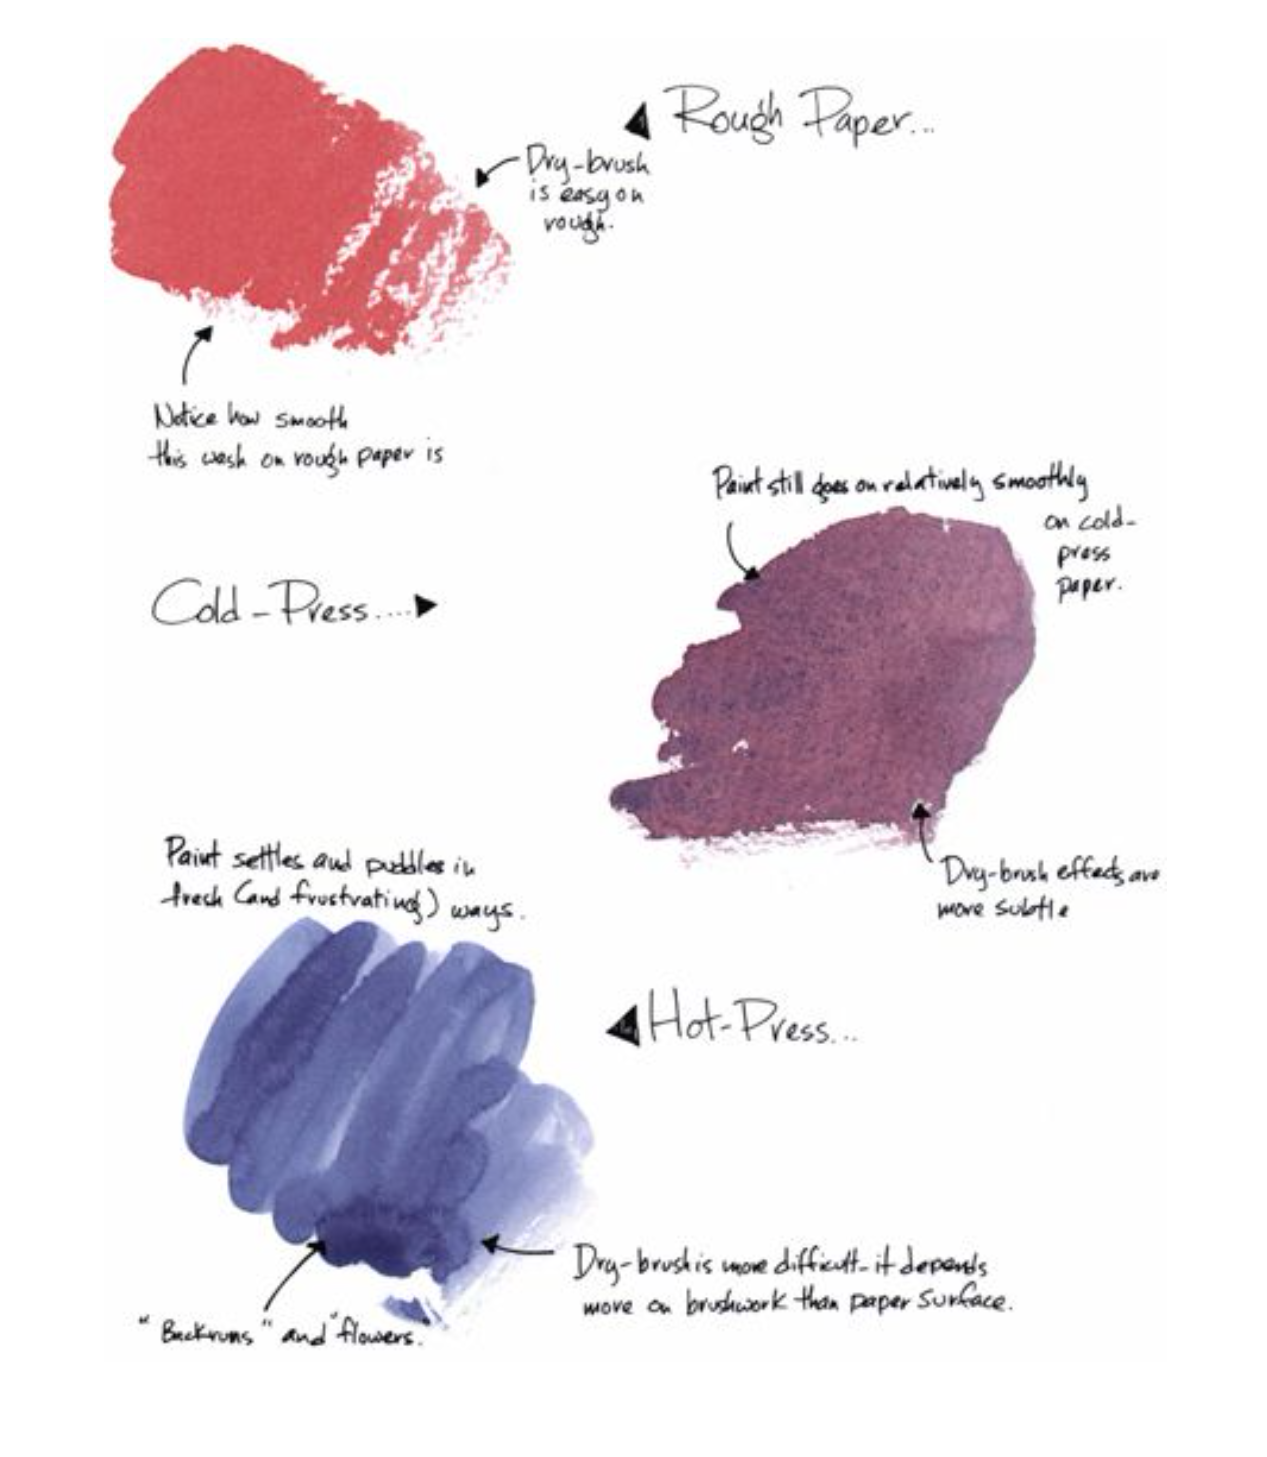 Rough Paper...
Dry-brush
is easy on
rough.
Notice how smooth
this wash on rough paper is
Paint still goes on relatively smoothly
on cold-
press
paper.
Cold-Press....
Dry-brush effects are
more subtle
Paint settles and puddles in
fresh (and frustrating) ways.
Hot-Press...
Dry-brush is more difficult - it depends
more on brushwork than paper surface.
"Backruns" and "flowers.